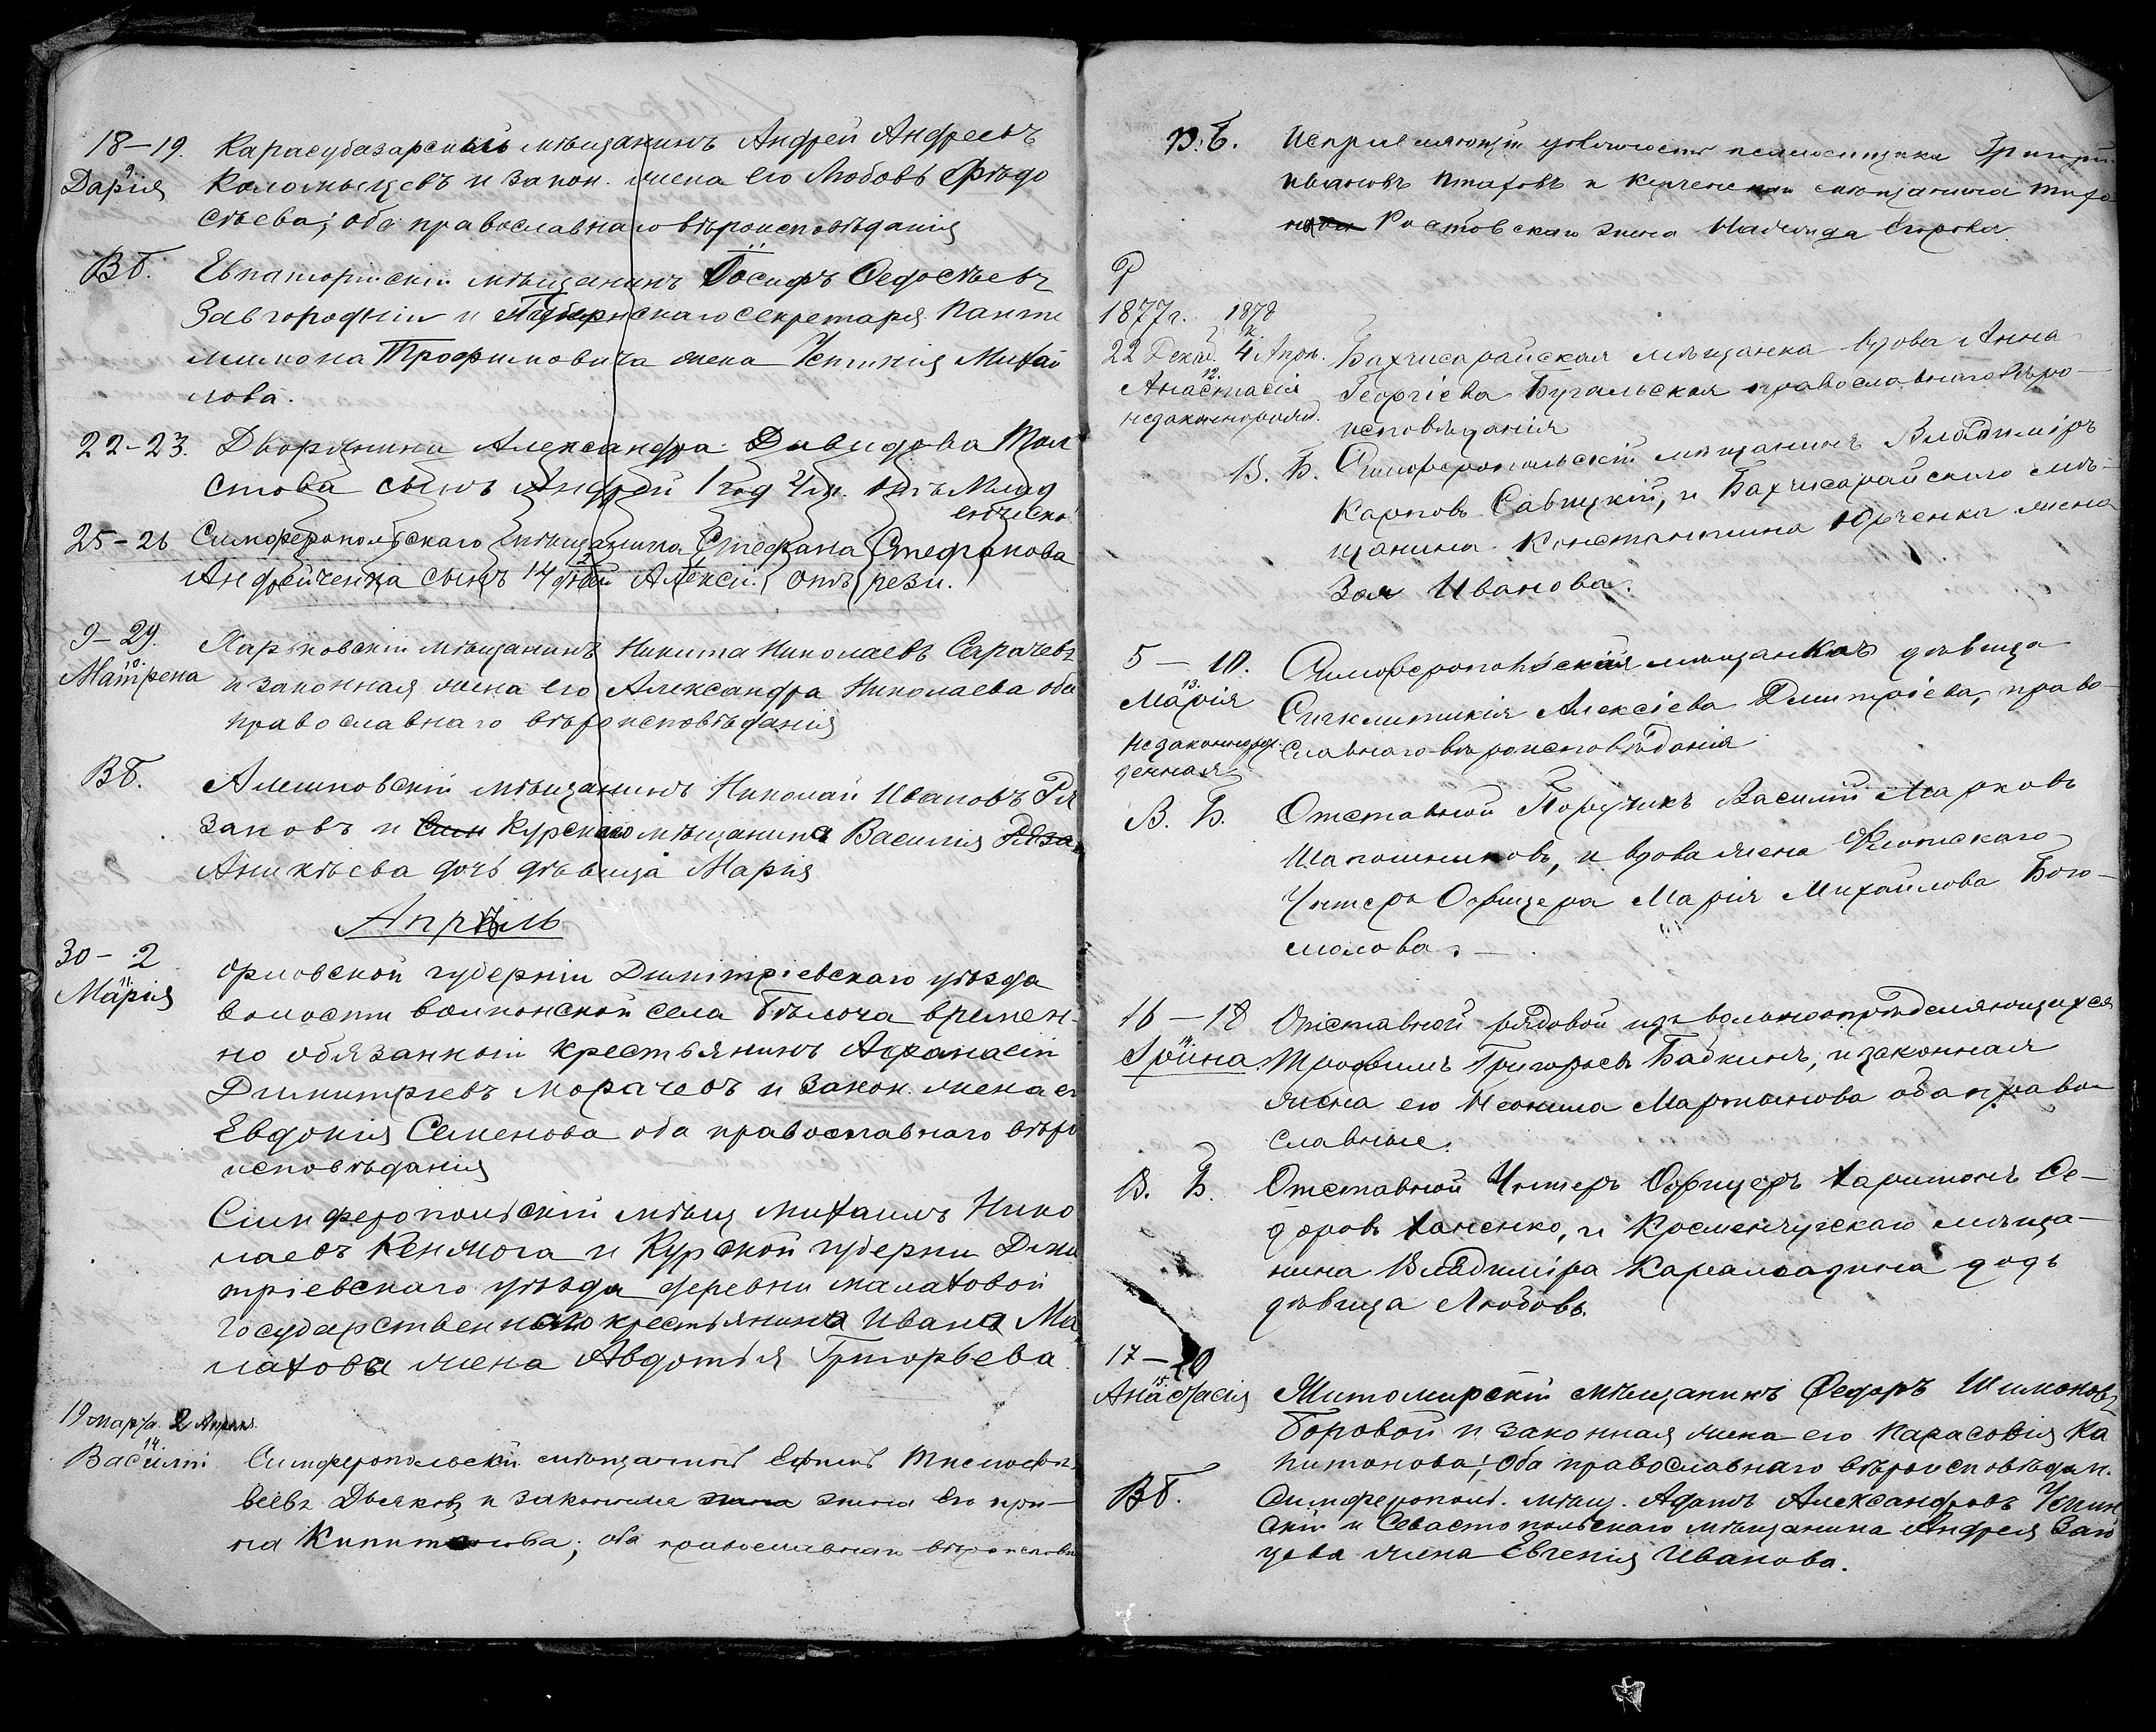 18–19. Карасубазарскій мѣщанинъ Андрей Андреевъ
9.
Дарія Коломыцевъ и закон. жена его Любовь Фѣдо
сѣева; оба православнаго вѣроисповѣданія
ВБ. Евпаторійскій мѣщанинъ Іосифъ Федосѣевъ
Завгородній и Губернскаго секретаря Панте
лимона Трофимовича жена Устинія Михай
лова.
22–23. Дворянина Александра Давидова Тол
стова сынъ Андрей 1 год 2 м. отъ Млад
енческо
25–26 Симферопольскаго мѣщанина Стефана Стефанова
Андрейченка сынъ 14 дней Алексій. отъ рези.
9–29. Харьковскій мѣщанинъ Никита Николаевъ Сарачевъ
10.
Матрена и законная жена его Александра Николаева оба
православнаго вѣроисповѣданія
ВБ. Алешковскій мѣщанинъ Николай Ивановъ Ря
зановъ и Сим Курскаго мѣщанина Василія Ряза
Аникѣева дочь дѣвица Марія
Апрѣль
30–2 Орловской губерніи Димитріевскаго уѣзда
11.
Марія волости волконской села Бѣлоча времен-
но обязанный крестьянинъ Афанасій
Димитріевъ Морачевъ и закон. жена ег
Евдокія Семенова оба православнаго вѣро
исповѣданія
Симферопольскій мѣщ Михаилъ Нико
лаевъ Кенжога и Курской губерніи Дми
тріевскаго уѣзда деревни малаховой
государственнаго крестьянина Ивана Ма
лахова жена Авдотья Григорьева
19 марта 2 Апрѣля
14.
Василій Симферопольскій мѣщанинъ Ефимъ Тимофѣ-
веевъ Дьяковъ и законная жена жена его ири-
на Капитонова; оба православнаго вѣроисповѣ
В. Б. Исправляющій должность псаломщика Григорій
Ивановъ Птаховъ и мѣщанина Тихо
на Ростовскаго жена Надежда Егорова
Р
1877г. 1878
22 Декаб. 4 Апрл. Бахчисарайская мѣщанка вдова Анна
12.
Анастасія Георгіева Бугальская православнаго вѣро-
незаконнорожд. исповѣданія
В. Б. Симферопольскій мѣщанинъ Владиміръ
Карповъ Савицкій, и Бахчисарайскаго мѣ-
щанина Константина Юрченки жена
Зоя Иванова.
5–10. Симферопольская мѣщанка дѣвица
13.
Марія Синклитикія Алексіева Дмитріева, право-
незаконнорож славнаго вѣроисповѣданія
денная
В. Б. Отставной Поручикъ Василій Марковъ
Шапошниковъ, и вдова жена Флотскаго
Унтеръ Офицера Марія Михайлова Бого-
молова. —
16–18 Отставной рядовой изъ вольноопредѣляющихся
14.
Ирина. Трофимъ Григорьевъ Бабкинъ, и законная
жена его Неонила Мартынова оба право
славные.
В. Б. Отставной Унтеръ Офицеръ Харитонъ Ѳе-
доровъ Ханенко, и Кременчугскаго мѣща-
нина Владиміра дочь
дѣвица Любовь.
17–20
15.
Анастасія Житомирскій мѣщанинъ Федоръ Шимоновъ
Боровой и законная жена его Парасовія Ка
питонова; Оба православнаго вѣроисповѣдан.
ВБ. Симферопол. мѣщ. Адамъ Александровъ Успин
скій и Севастопольскаго мѣщанина Андрея Зай
цова жена Евгенія Иванова.